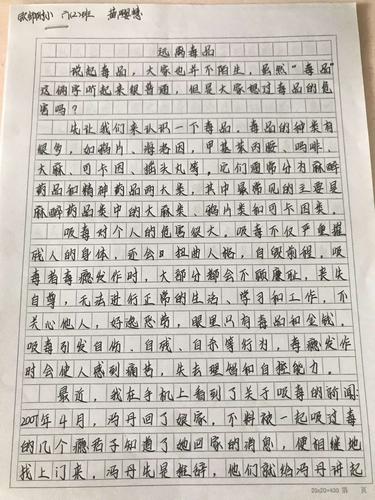 六(2)班
远离毒品
说起毒品,大家也并不陌生,虽然“毒品”
这俩字听起来很普通,但是大家想过毒品的危
害吗?
先让我们来认识一下毒品,毒品的种类有
很多,如鸦片、海洛因,甲基苯丙胺、吗啡、
大麻、可卡因、摇头丸等,它们通常分为麻醉
药品和精神药品两大类,其中最常见的主要是
麻醉药品类中的大麻类、鸦片类和可卡因类。
吸毒对个人的危害很大,吸毒不仅严重摧
残人的身体,还会扭曲人格,自毁前程。吸
毒者毒瘾发作时,大部分都会不顾廉耻,丧失
自尊,无法进行正常的生活、学习和工作,不
关心他人,好逸恶劳,眼里只有毒品和金钱。
吸毒引发自伤、自残、自杀等行为,毒瘾发作
时会使人感到痛苦,失去理智和自控能力。
最近,我在手机上看到了关于吸毒的新闻:
2007年4月,冯丹回了娘家,不料被一起吸过毒
的几个瘾君子知道了她回家的消息,便相继地
找上门来,冯丹先是推辞,他们就给冯丹讲起
20×20=400 第 页